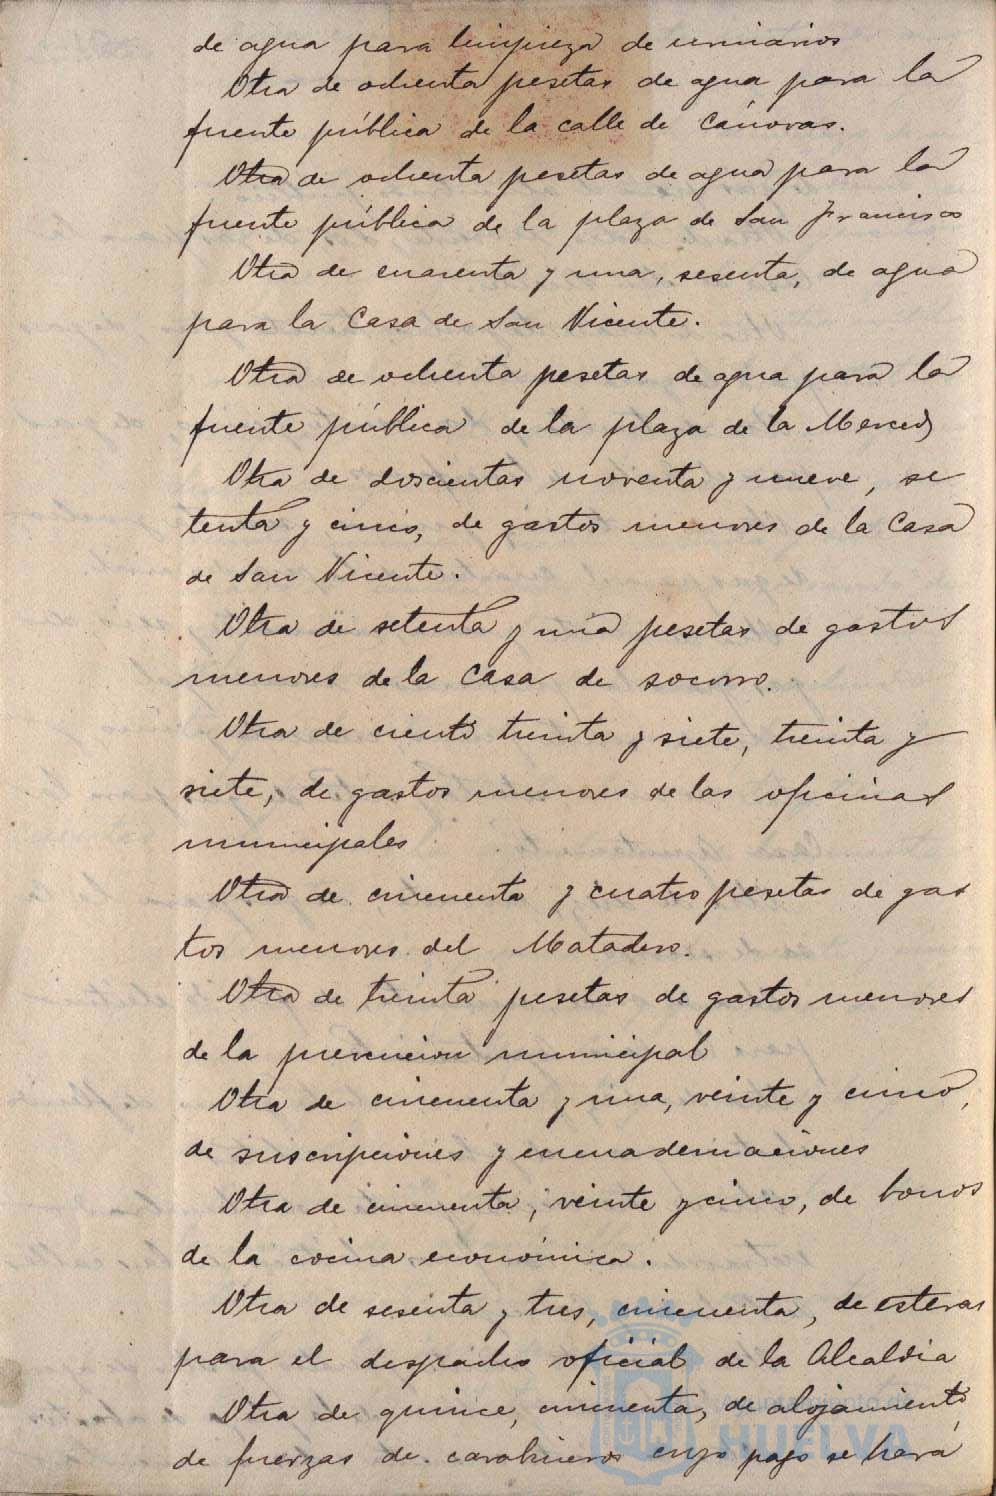 de agua para limpieza de urinarios
Otra de ochenta pesetas de agua para la
fuente pública de la calle de Cánovas.
Otra de ochenta pesetas de agua para la
fuente pública de la plaza de San Francisco
Otra de cuarenta y una, sesenta, de agua
para la Casa de San Vicente.
Otra de ochenta pesetas de agua para la
fuente pública de la plaza de la Merced
Otra de doscientas noventa y nueve, se
tenta y cinco, de gastos menores de la Casa
de San Vicente.
Otra de setenta y una pesetas de gastos
menores de la Casa de socorro.
Otra de ciento treinta y siete, treinta y
siete, de gastos menores de las oficinas
municipales
Otra de cincuenta y cuatro pesetas de gas
tos menores del Matadero.
Otra de treinta pesetas de gastos menores
de la prevencion municipal
Otra de cincuenta y una, veinte y cinco,
de suscripciones y encuadernaciones
Otra de cincuenta, veinte y cinco, de bonos
de la cocina económica.
Otra de sesenta y tres, cincuenta, de esteras
para el despacho oficial de la Alcaldia
Otra de quince, cincuenta, de alojamiento
de fuerzas de carabineros cuyo pago se hará
Ayuntamiento de
HUELVA